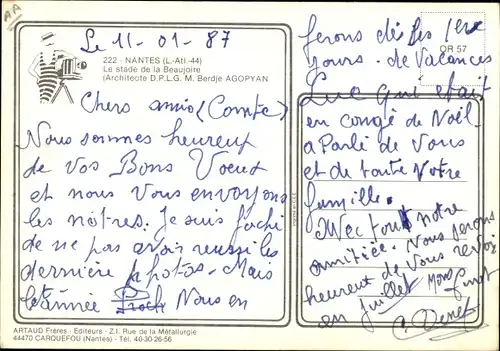 AA
Le 11-01-87
222 - NANTES (L.-Atl.-44)
Le stade de la Beaujoire
(Architecte D.P.L.G. M. Berdje AGOPYAN
Chers amis (Comte)
Nous sommes heureux
de vos Bons Voeux
et nous vous envoyons
les nôtres. Je suis faché
de ne pas avoir reussi les
dernière photos - Mais
l'année Proch Nous en
ferons dés les 1ers
jours - de vacances
OR 57
Luc qui etait
en congé de Noël
a Parlé de Vous
et de toute Votre
famille.
Avec tout notre
amitiée. Nous serons
heureux de Vous revoir
en Juillet
ARTAUD Frères - Editeurs - Z.I. Rue de la Métallurgie
44470 CARQUEFOU (Nantes) - Tél. 40-30-26-56